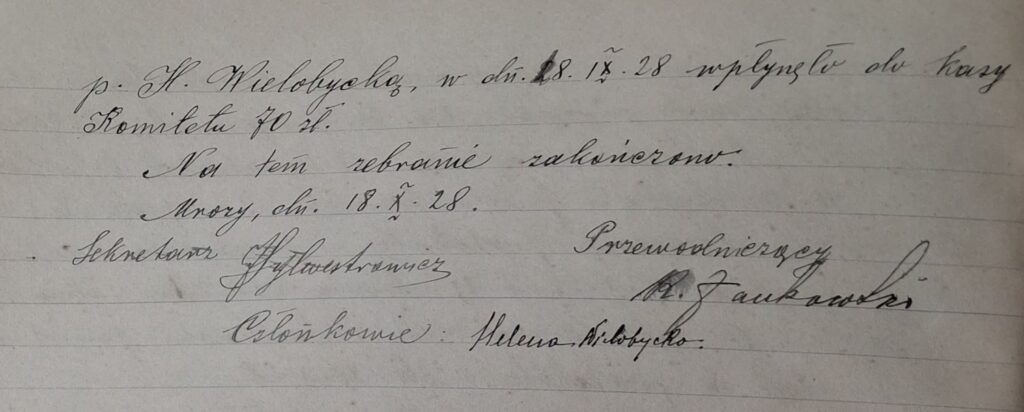 p. H. Wielobycką, w dń. 18. IX. 28 wpłynęło do kasy
Komitetu 70 zł.
Na tem zebranie zakończono.
Mrozy, dń. 18. X. 28.
Sekretarz Sylwestrowicz Przewodniczący
R. Jankowski
Członkowie: Helena Wielobycka.